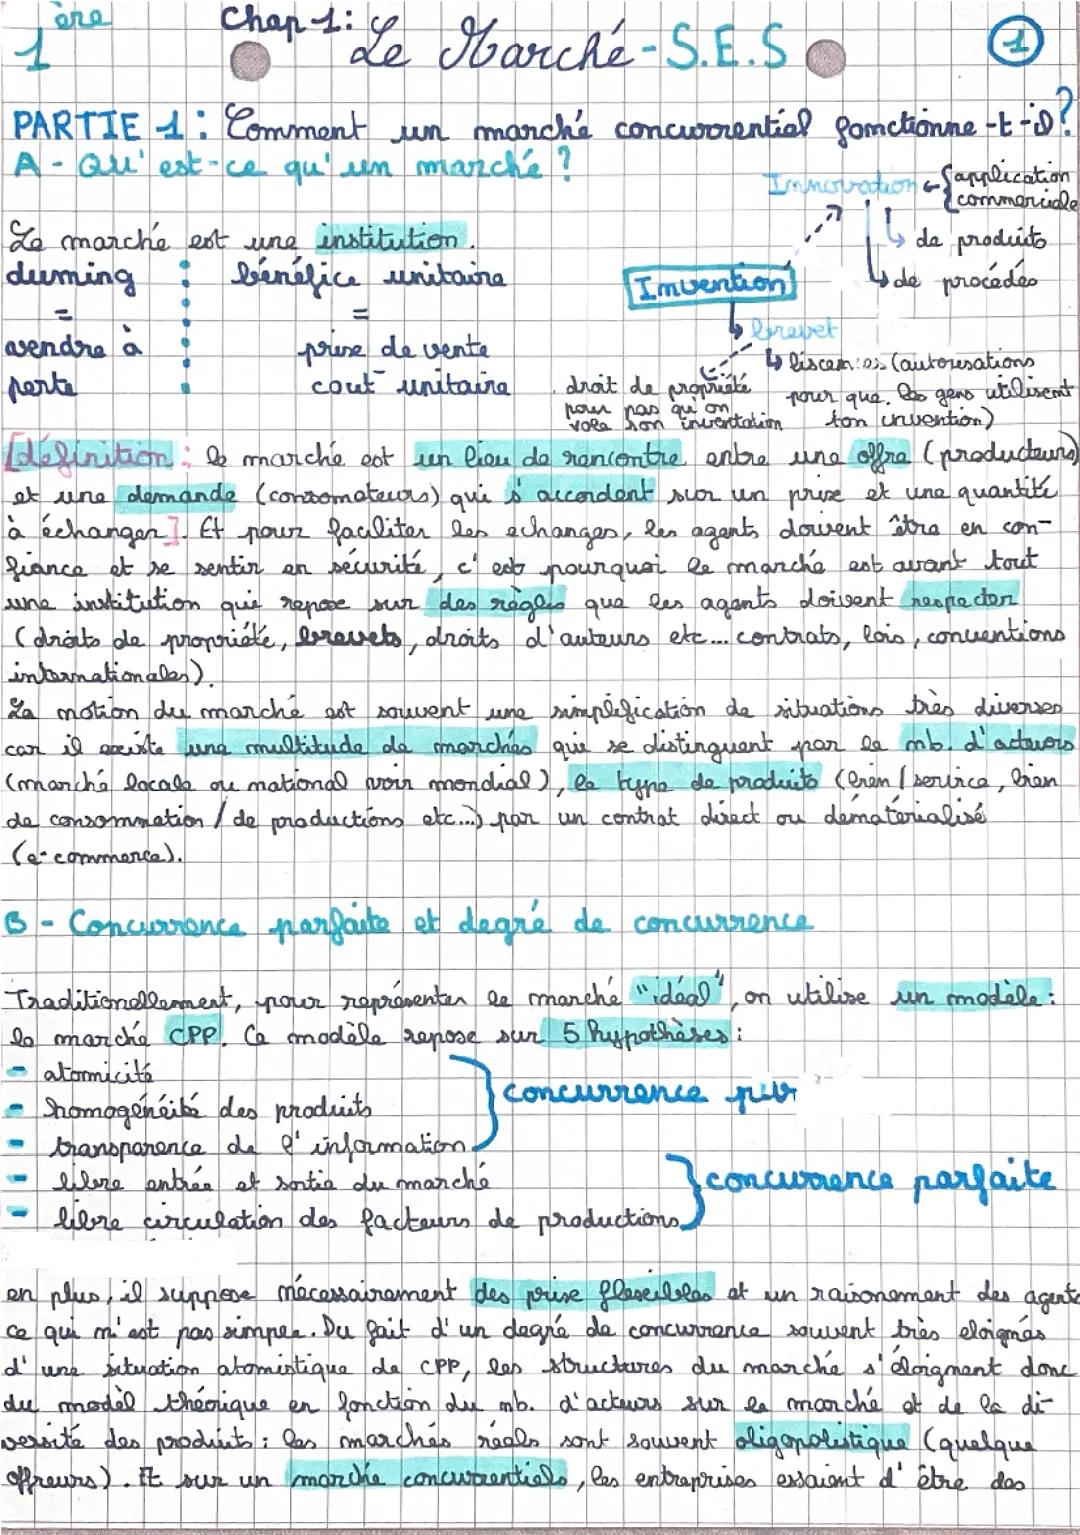 1ère
Chap 1: Le Marché - S.E.S
1
PARTIE 1 : Comment un marché concurrentiel fonctionne-t-il?
A - Qu'est-ce qu'un marché ?
Innovation ← { application commerciale
↳ de produits
↳ de procédés
Invention
↳ brevet
↳ liscences (autorisations
pour que les gens utilisent
ton invention)
droit de propriété
pour pas qu'on
vole son inventation
Le marché est une institution.
duming
=
vendre à
perte
bénéfice unitaire
=
prixe de vente
cout unitaire
[définition : le marché est un lieu de rencontre entre une offre (producteurs)
et une demande (consomateurs) qui s'accordent sur un prixe et une quantité
à échanger]. Et pour faciliter les echanges, les agents doivent être en con-
fiance et se sentir en sécurité, c'est pourquoi le marché est avant tout
une institution qui repose sur des règles que les agents doivent respecter
(droits de propriété, brevets, droits d'auteurs etc... contrats, lois, conventions
internationales).
La notion du marché est souvent une simplification de situations très diverses
car il existe une multitude de marchés qui se distinguent par le nb. d'acteurs
(marché locale ou national voir mondial), le type de produits (bien / service, bien
de consommation / de productions etc...) par un contrat direct ou dématérialisé
(e-commerce).
B - Concurrence parfaite et degré de concurrence
Traditionellement, pour représenter le marché "idéal", on utilise un modèle :
le marché CPP. Ce modèle repose sur 5 hypothèses :
- atomicité
- homogénéité des produits
- transparence de l'information
} concurrence
- libre entrée et sortie du marché
- libre circulation des facteurs de productions
} concurrence parfaite
en plus, il suppose nécessairement des prixe flexeibles et un raisonement des agents
ce qui n'est pas simpee. Du fait d'un degré de concurrence souvent très eloignés
d'une situation atomistique de CPP, les structures du marché s'éloignent donc
du modèl théorique en fonction du nb. d'acteurs sur le marché et de la di-
versité des produits : les marchés réels sont souvent oligopolistique (quelque
offreurs). Et sur un marché concurrentiels, les entreprises essaient d'être des